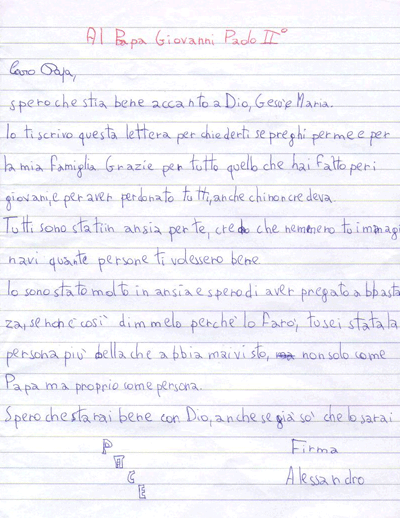 Al Papa Giovanni Paolo II°
Caro Papa,
spero che stia bene accanto a Dio, Gesù e Maria.
Io ti scrivo questa lettera per chiederti se preghi per me e per
la mia famiglia. Grazie per tutto quello che hai fatto per i
giovani, e per aver perdonato tutti, anche chi non credeva.
Tutti sono stati in ansia per te, credo che nemmeno tu immagi
navi quante persone ti volessero bene.
Io sono stato molto in ansia e spero di aver pregato abbasta
za, se non è così dimmelo perché lo farò, tu sei stata la
persona più bella che abbia mai visto, non solo come
Papa ma proprio come persona.
Spero che starai bene con Dio, anche se già so' che lo sarai
PACE
Firma
Alessandro